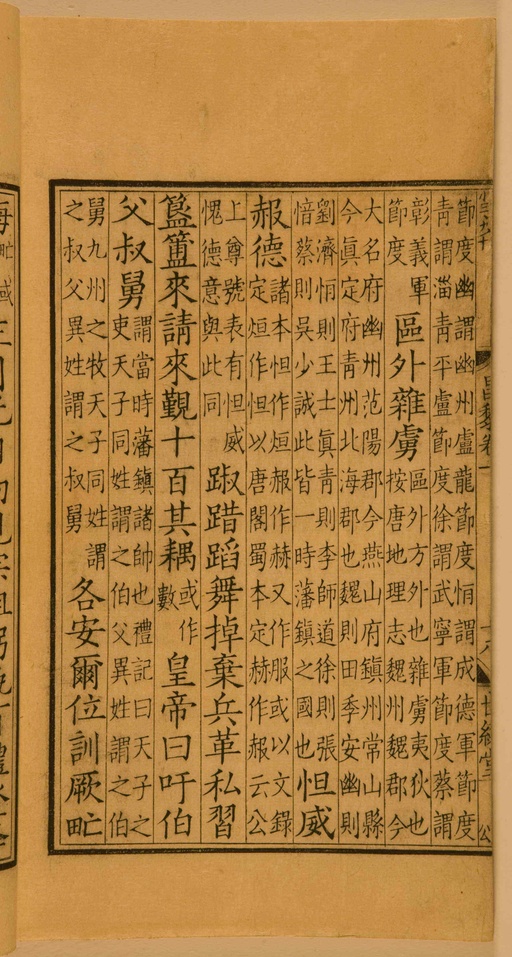 節度幽謂幽州盧龍節度恒謂成德軍節度
青謂淄青平盧節度徐謂武寧軍節度蔡謂
彰義軍
節度
區外雜虜
區外方外也雜虜夷狄也
按唐地理志魏州魏郡今
大名府幽州范陽郡今燕山府鎮州常山縣
今眞定府青州北海郡也魏則田季安幽則
劉濟恒則王士眞青則李師道徐則張
愔蔡則吳少誠此皆一時藩鎮之國也
怛威
赧德
諸本怛作烜赧作赫又作服或以文錄
定烜作怛以唐閣蜀本定赫作赧云公
上尊號表有怛威
愧德意與此同
踧踖蹈舞掉棄兵革私習
簋簠來請來覲十百其耦
或作
數
皇帝曰吁伯
父叔舅
謂當時藩鎮諸帥也禮記曰天子之
吏天子同姓謂之伯父異姓謂之伯
舅九州之牧天子同姓謂
之叔父異姓謂之叔舅
各安爾位訓厥甿